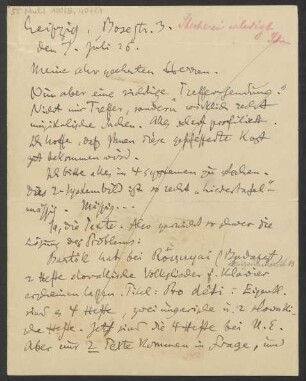 Leipzig, Bosestr. 3.
den 7. Juli 26.
Meine sehr geehrten Herren.
Nun aber eine richtige Treffersendung!
Nicht nur Treffer, sondern wirklich recht
musikalische Sachen. Alles scharf profiliert.
Ich hoffe, daß Ihnen diese gepfefferte Kost
gut bekommen wird.
Ich bitte alles in 4 Systemen zu stechen.
Das 2-Systembild ist so recht "Liedertafel"
mässig.
Ja, die Texte. Aber garnicht so schwer die
Lösung des Problems:
Bartók hat bei Rózsavölgyi (Budapest)
2 Hefte slovakische Volkslieder f. Klavier
erscheinen lassen. Titel: Pro deti: Eigentl.
sind es 4 Hefte, zwei ungarische u. 2 slovaki-
sche Hefte. Jetzt sind die 4 Hefte bei U. E.
Aber nur 2 Hefte kommen in Frage, und